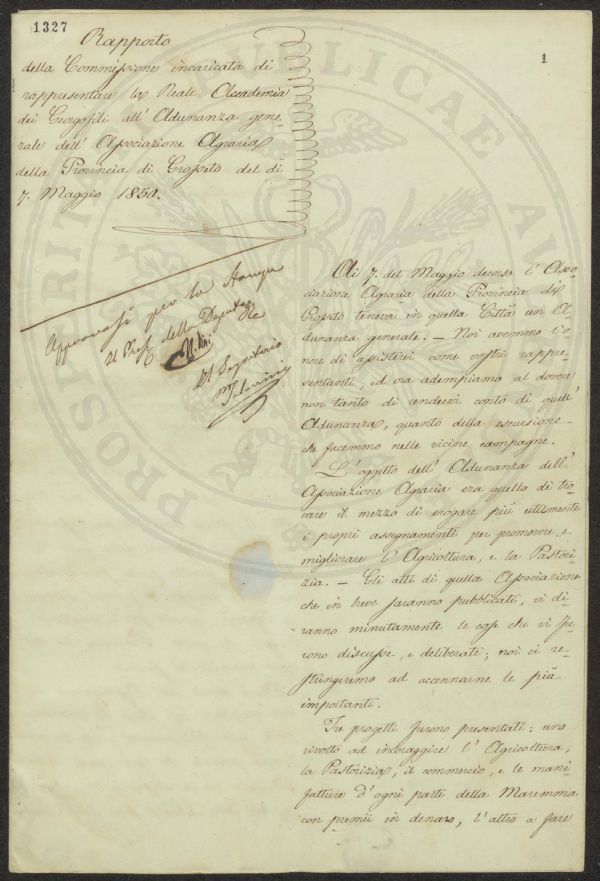 1327
1
Rapporto
della Commissione incaricata di
rappresentare la Reale Accademia
dei Georgofili all' Adunanza gene-
rale dell' Associazione Agraria
della Provincia di Grosseto del dì
7. Maggio 1851.
Approvasi per la stampa
Il Pres. della Deputaz.ne
Il Segretario
Tabarrini
Ai 7. del Maggio decorso l' Asso-
ciazione Agraria della Provincia di
Grosseto teneva in quella Città un A-
dunanza generale. — Noi avemmo l'o-
nore di assistervi come vostri rappre-
sentanti, ed ora adempiamo al dovere
non tanto di rendervi conto di quell'
Adunanza, quanto della escursione
che facemmo nelle vicine campagne.
L'oggetto dell' Adunanza dell'
Associazione Agraria era quello di tro-
vare il mezzo di erogare più utilmente
i propri assegnamenti per promovere, e
migliorare l' Agricoltura, e la Pastori-
zia. — Gli atti di quella Associazione
che in breve saranno pubblicati, vi di-
ranno minutamente le cose che vi fu-
rono discusse, e deliberate; noi ci re-
stringeremo ad accennarne le più
importanti.
Tre progetti furono presentati: uno
rivolto ad incoraggire l' Agricoltura,
la Pastorizia, il commercio, e le mani-
fatture d'ogni parti della Maremma
con premii in denaro, l'altro a fare
PROSPERITATI PUBLICAE AU